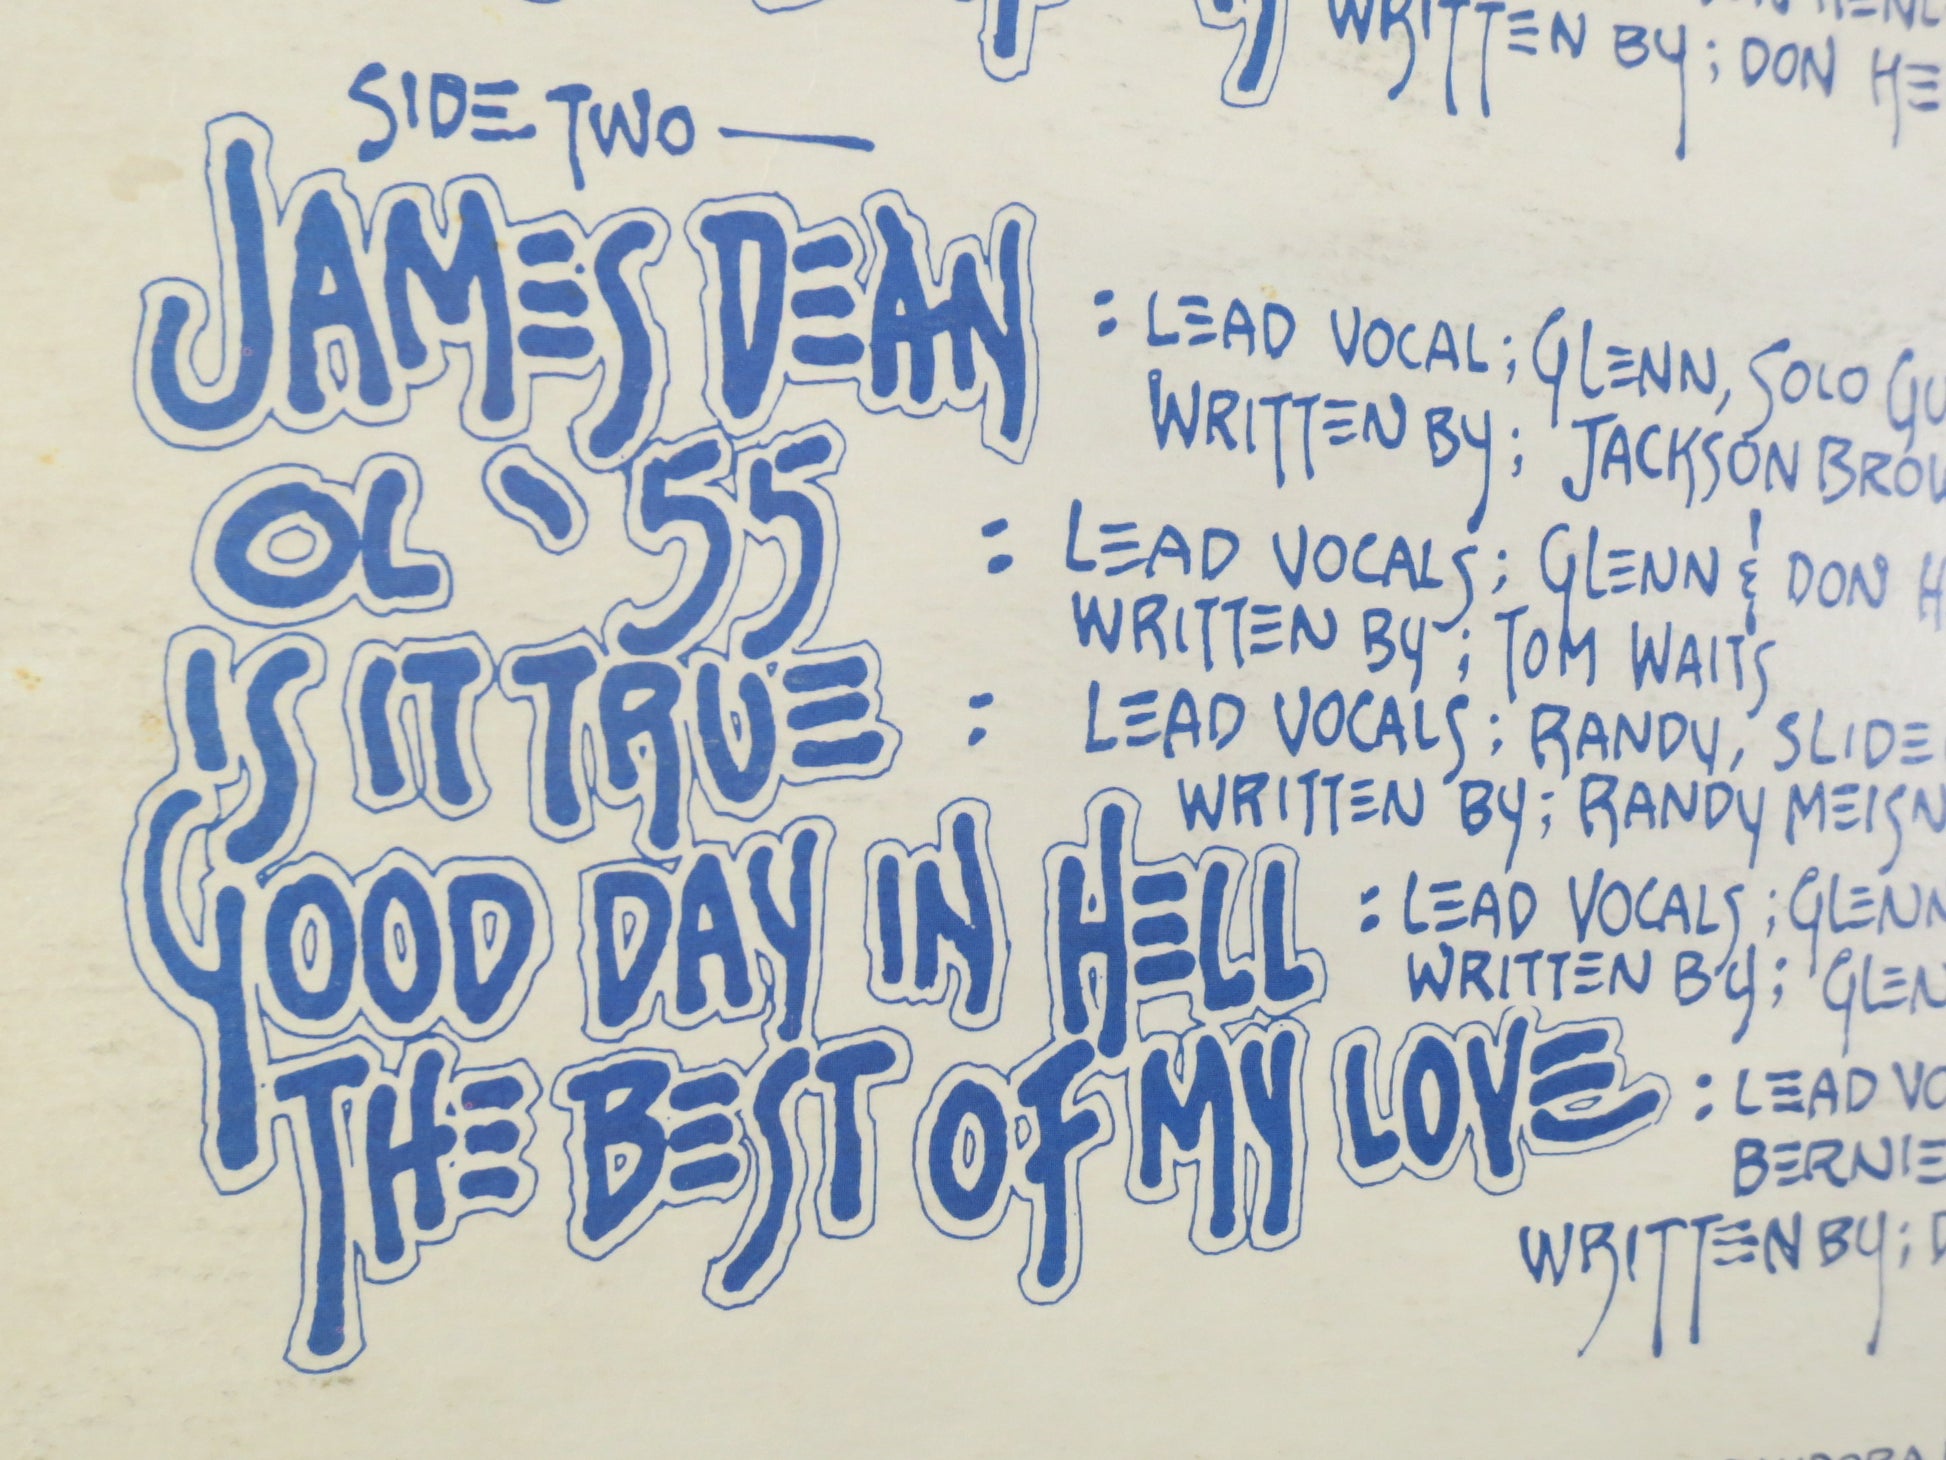 WRITTEN BY; DON
SIDE TWO —
JAMES DEAN : LEAD VOCAL; GLENN, SOLO
WRITTEN BY; JACKSON
OL '55 : LEAD VOCALS; GLENN & DON
WRITTEN BY; TOM WAITS
IS IT TRUE : LEAD VOCALS; RANDY, SLIDE
WRITTEN BY; RANDY
GOOD DAY IN HELL : LEAD VOCALS; GLENN
WRITTEN BY;
THE BEST OF MY LOVE : LEAD
BERNIE
WRITTEN BY;